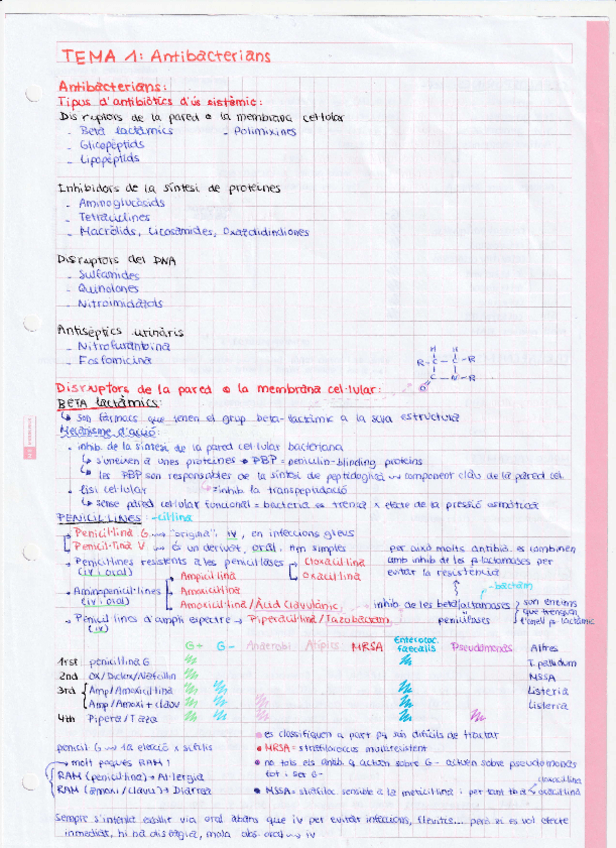 TEMA 1: Antibacterians
Antibacterians:
Tipus d'antibiòtics d'ús sistèmic:
Disruptors de la pared o la membrana cel·lular
- Beta lactàmics - Polimixines
- Glicopèptids
- Lipopèptids
Inhibidors de la síntesi de proteïnes
- Aminoglucòsids
- Tetraciclines
- Macròlids, Licosamides, Oxazolidindiones
Disruptors del DNA
- Sulfamides
- Quinolones
- Nitroimidazols
Antisèptics urinàris
- Nitrofurantoïna
- Fosfomicina
H H
R-C-C-R
C-N-R
O
Disruptors de la pared o la membrana cel·lular:
BETA lactàmics:
↳ són fàrmacs que tenen el grup beta-lactàmic a la seva estructura
Mecanisme d'acció:
• inhib. de la síntesi de la pared cel·lular bacteriana
↳ s'uneixen a unes proteïnes → PBP = penicilin-blinding proteins
↳ les PBP són responsables de la síntesi de peptidoglicà → component clau de la pared cel.
↳ inhib la transpeptidació
• lisi cel·lular
↳ sense pared cel·lular funcional = bacteria es trenca x efecte de la pressió osmòtica
PENICIL·LINES: -cil·lina
Penicil·lina G → "original", iv, en infeccions greus
Penicil·lina V → és un derivat, oral, + simples
• Penicil·lines resistents a les penicil·lases: Cloxacil·lina
(iv i oral) Oxacil·lina
per això molts antibiò. es combinen
amb inhib de les β-lactamases per
evitar la resistencia
Ampicil·lina
• Aminopenicil·lines Amoxicil·lina
(iv i oral) Amoxicil·lina/Àcid Clavulànic
• Penicil·lines d'ampli espectre → Piperacil·lina/Tazobactam
(iv)
-bactam
inhib de les beta lactamases
penicil·lases
són enzims
que trenquen
l'anell β-lactàmic
G+ G- Anaerobi Atípics MRSA Enterococ. faecalis Pseudomonas Altres
1rst penicil·lina G T. pallidum
2nd Ox/Diclox/Nafcillin MSSA
3rd Amp/Amoxicil·lina Listeria
Amp/Amoxi + clavu Listeria
4th Pipera/Taza
• es classifiquen a part pq són difícils de tractar
penicil G → 1a elecció x sífilis
• MRSA = strafilococcus multiresistent
→ molt poques RAM!
• no tots els antib q actuen sobre G- actuen sobre pseudomonas
tot i ser G-
RAM (penicilina) → Al·lergia
RAM (amoxi/clavu) → Diarrea
• MSSA = stafiloc sensible a la meticil·lina i per tant tb a cloxacilina
oxacilina
Sempre s'intenta establir via oral abans que iv per evitar infeccions, flevitis... però si es vol efecte
inmediat, hi ha disfàgia, mala abs oral → iv